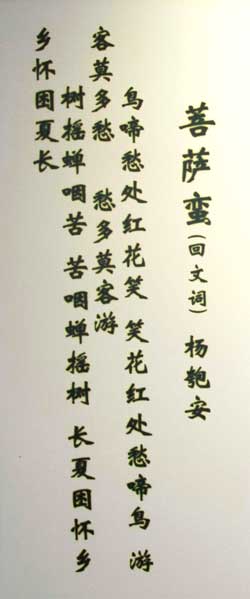 菩萨蛮(回文词) 杨匏安
鸟啼愁处红花笑 笑花红处愁啼鸟 游
客莫多愁 愁多莫客游
树摇蝉咽苦 苦咽蝉摇树 长夏困怀乡
乡怀困夏长